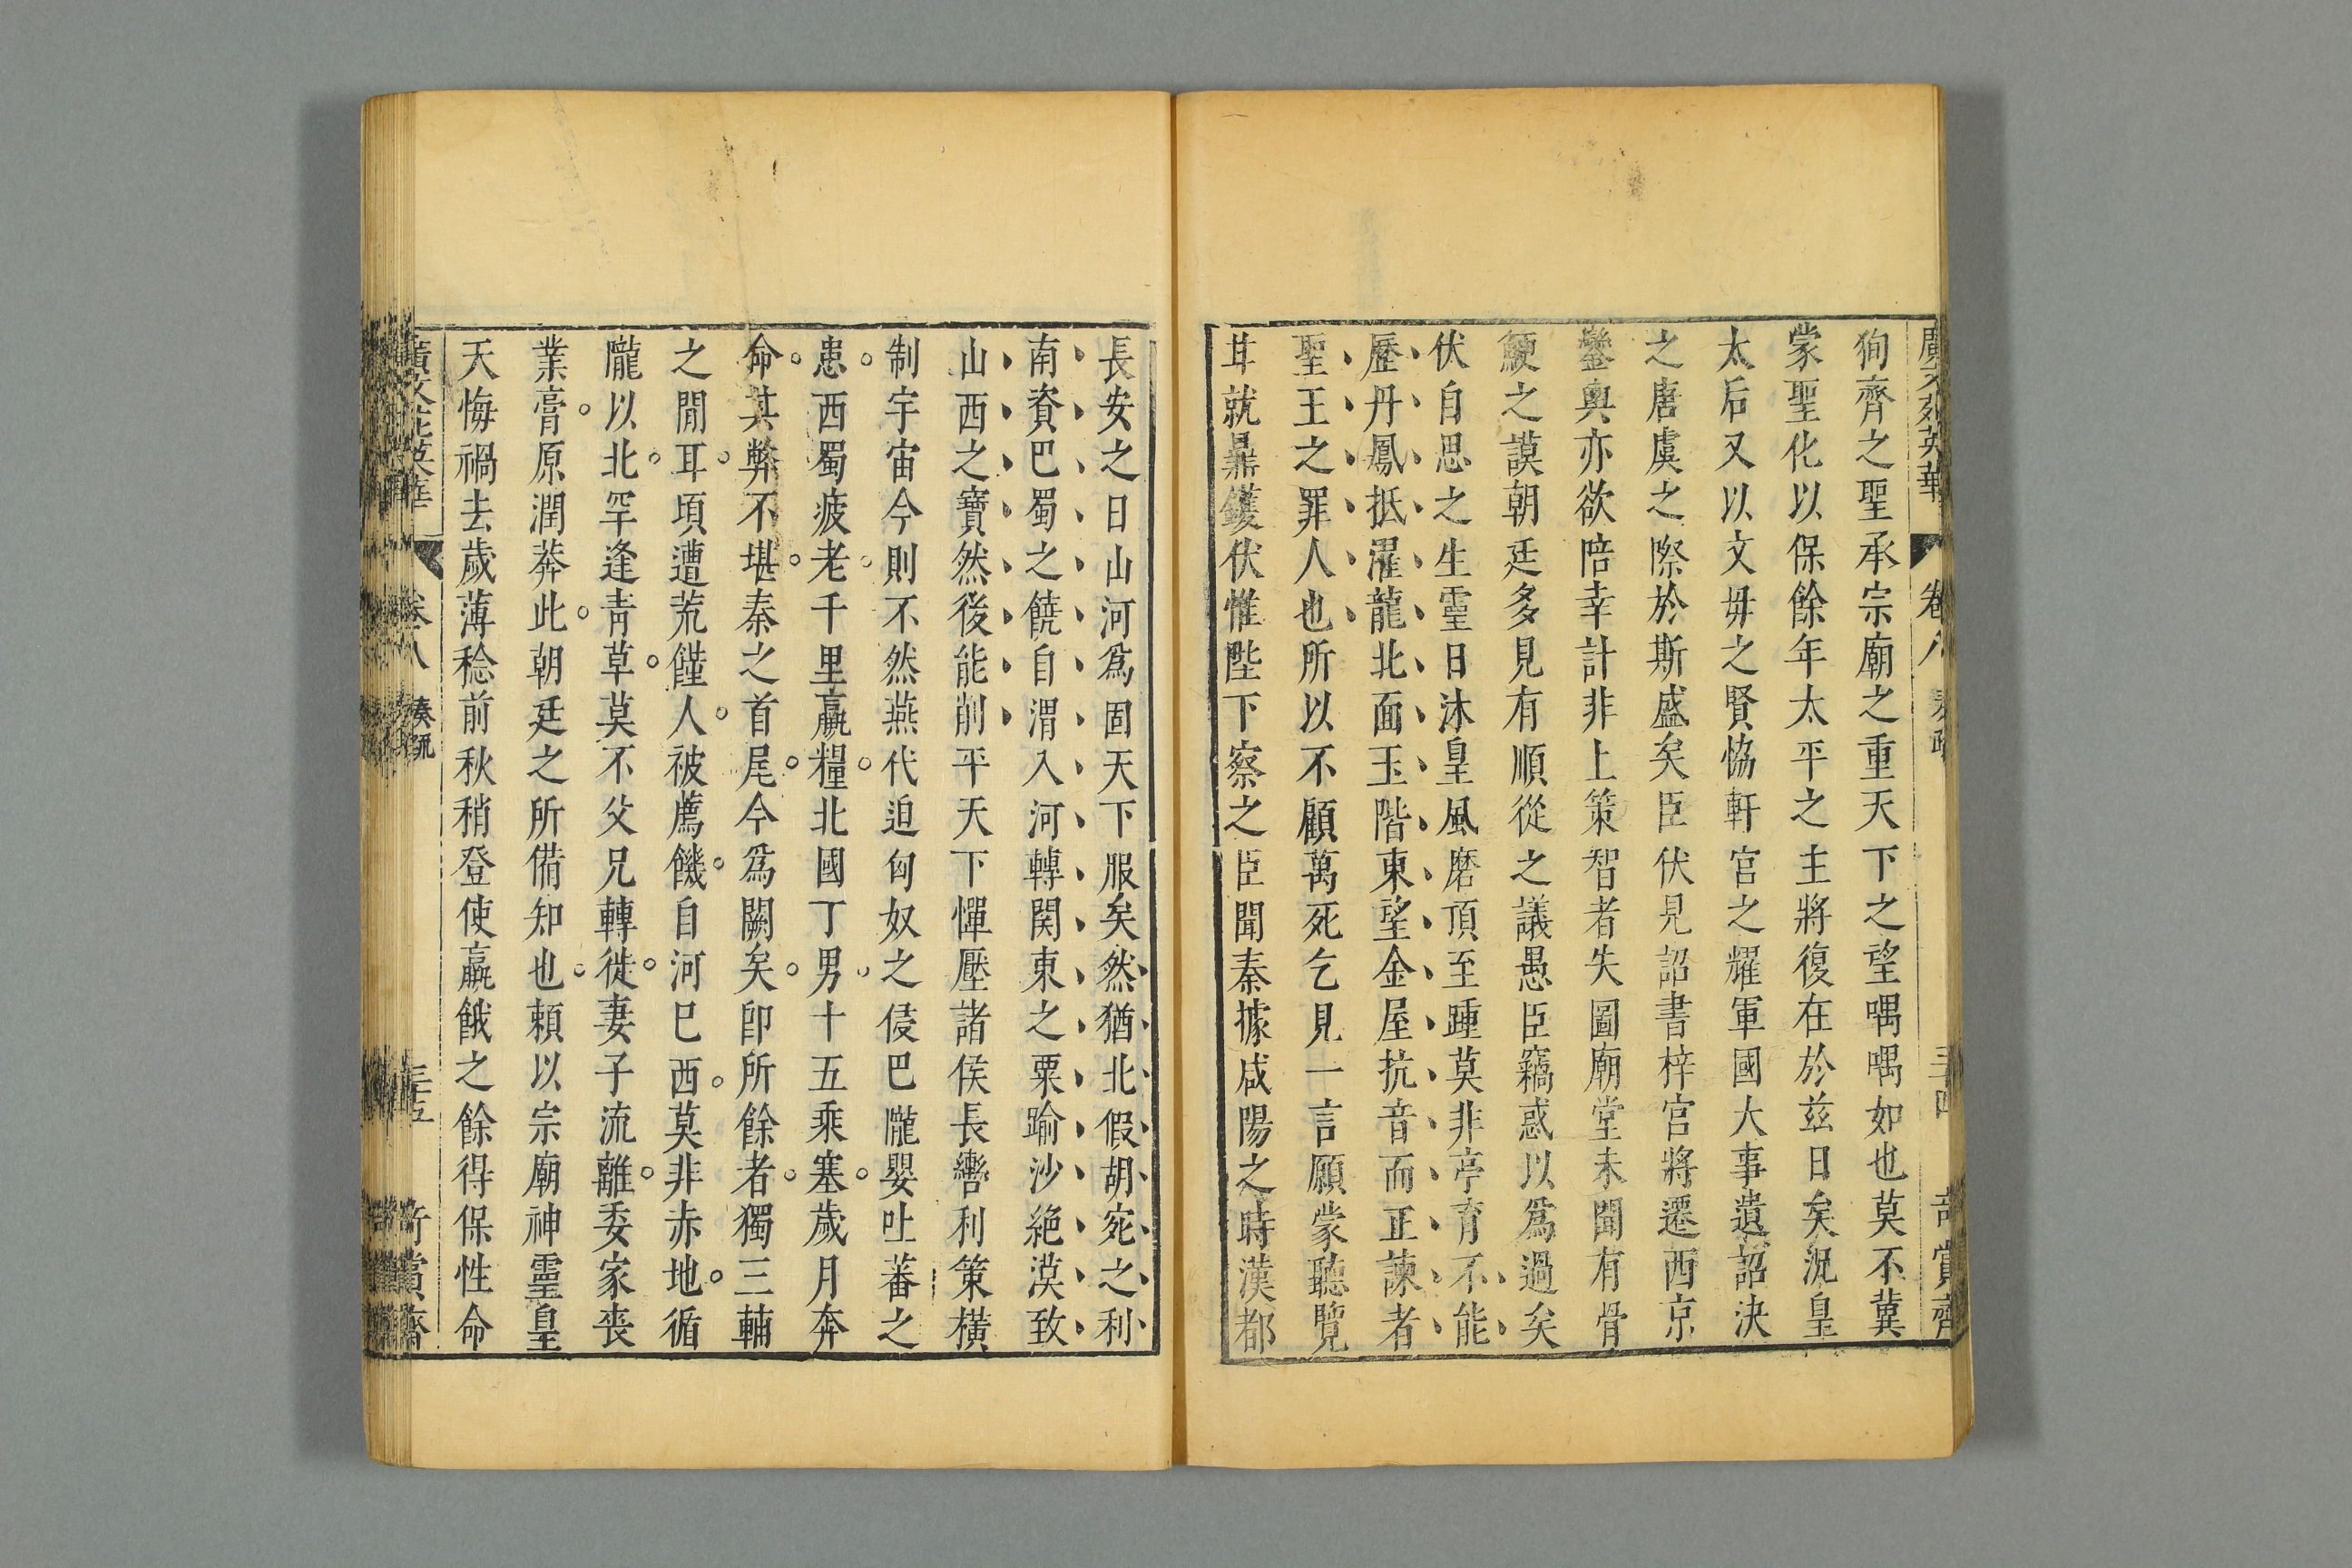 廣文苑英華 卷八 奏疏 三十四 奇賞齋
狥齊之聖承宗廟之重天下之望喁喁如也莫不冀
蒙聖化以保餘年太平之主將復在於茲日矣況皇
太后又以文毋之賢恊軒宮之耀軍國大事遺詔決
之唐虞之際於斯盛矣臣伏見詔書梓宮將遷西京
鑾輿亦欲陪幸計非上策智者失圖廟堂未聞有骨
鯁之謨朝廷多見有順從之議愚臣竊惑以爲過矣
伏自思之生霊日沐皇風磨頂至踵莫非亭育不能
歷丹鳳抵濯龍北面玉階東望金屋抗音而正諫者
聖王之罪人也所以不顧萬死乞見一言願蒙聽覽
甘就鼎鑊伏惟陛下察之臣聞秦據咸陽之時漢都
長安之日山河爲固天下服矣然猶北假胡宛之利
南資巴蜀之饒自渭入河轉関東之粟踰沙絶漠致
山西之寶然後能削平天下憚壓諸侯長轡利策橫
制宇宙今則不然燕代迫匈奴之侵巴隴嬰吐蕃之
患西蜀疲老千里羸糧北國丁男十五乘塞歲月奔
命其弊不堪秦之首尾今爲闕矣卽所餘者獨三輔
之閒耳頃遭荒饉人被薦饑自河巳西莫非赤地循
隴以北罕逢青草莫不父兄轉徙妻子流離委家喪
業膏原潤莽此朝廷之所備知也賴以宗廟神靈皇
天悔禍去歲薄稔前秋稍登使羸餓之餘得保性命
廣文苑英華 卷八 奏疏 三十五 奇賞齋